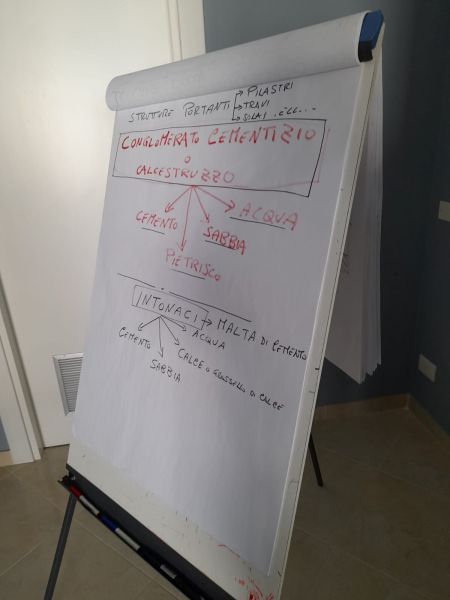 STRUTTURE PORTANTI
PILASTRI
TRAVI
SOLAI
CONGLOMERATO CEMENTIZIO
O
CALCESTRUZZO
CEMENTO
PIETRISCO
SABBIA
ACQUA
INTONACI → MALTA DI CEMENTO
CEMENTO
SABBIA
CALCE O GRASSELLO DI CALCE
ACQUA